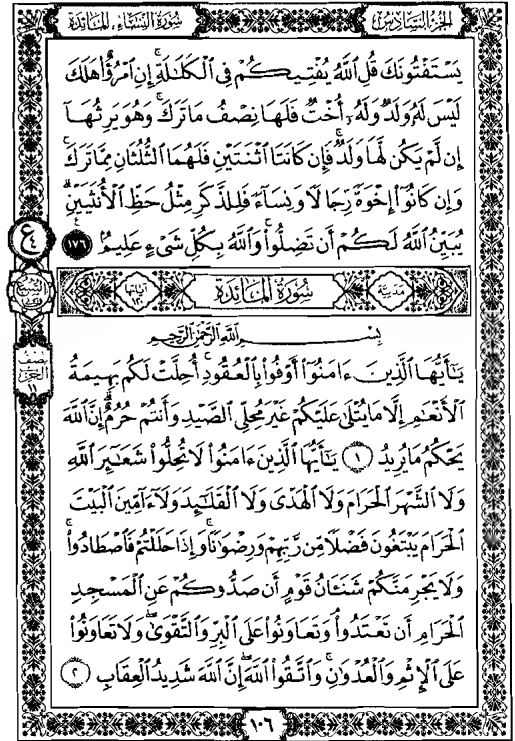 الجزء السادس
سورة النساء، المائدة
يَسْتَفْتُونَكَ قُلِ اللَّهُ يُفْتِيكُمْ فِي الْكَلَالَةِ ۚ إِنِ امْرُؤٌا۟ هَلَكَ
لَيْسَ لَهُۥ وَلَدٌ وَلَهُۥٓ أُخْتٌ فَلَهَا نِصْفُ مَا تَرَكَ ۚ وَهُوَ يَرِثُهَآ
إِن لَّمْ يَكُن لَّهَا وَلَدٌ ۚ فَإِن كَانَتَا اثْنَتَيْنِ فَلَهُمَا الثُّلُثَانِ مِمَّا تَرَكَ ۚ
وَإِن كَانُوٓا۟ إِخْوَةً رِّجَالًا وَنِسَآءً فَلِلذَّكَرِ مِثْلُ حَظِّ الْأُنثَيَيْنِ ۗ
يُبَيِّنُ اللَّهُ لَكُمْ أَن تَضِلُّوا۟ ۗ وَاللَّهُ بِكُلِّ شَىْءٍ عَلِيمٌۢ ١٧٦
مدنية
سُورَةُ الْمَائِدَةِ
بِسْمِ اللَّهِ الرَّحْمَٰنِ الرَّحِيمِ
يَٰٓأَيُّهَا الَّذِينَ ءَامَنُوٓا۟ أَوْفُوا۟ بِالْعُقُودِ ۚ أُحِلَّتْ لَكُم بَهِيمَةُ
الْأَنْعَٰمِ إِلَّا مَا يُتْلَىٰ عَلَيْكُمْ غَيْرَ مُحِلِّى الصَّيْدِ وَأَنتُمْ حُرُمٌ ۗ إِنَّ اللَّهَ
يَحْكُمُ مَا يُرِيدُ ١ يَٰٓأَيُّهَا الَّذِينَ ءَامَنُوا۟ لَا تُحِلُّوا۟ شَعَٰٓئِرَ اللَّهِ
وَلَا الشَّهْرَ الْحَرَامَ وَلَا الْهَدْىَ وَلَا الْقَلَٰٓئِدَ وَلَآ ءَآمِّينَ الْبَيْتَ
الْحَرَامَ يَبْتَغُونَ فَضْلًا مِّن رَّبِّهِمْ وَرِضْوَٰنًا ۚ وَإِذَا حَلَلْتُمْ فَاصْطَادُوا۟ ۚ
وَلَا يَجْرِمَنَّكُمْ شَنَـَٔانُ قَوْمٍ أَن صَدُّوكُمْ عَنِ الْمَسْجِدِ
الْحَرَامِ أَن تَعْتَدُوا۟ ۘ وَتَعَاوَنُوا۟ عَلَى الْبِرِّ وَالتَّقْوَىٰ ۖ وَلَا تَعَاوَنُوا۟
عَلَى الْإِثْمِ وَالْعُدْوَٰنِ ۚ وَاتَّقُوا۟ اللَّهَ ۖ إِنَّ اللَّهَ شَدِيدُ الْعِقَابِ ٢
١٠٦
ع
٤
نصف
الحزب
١١